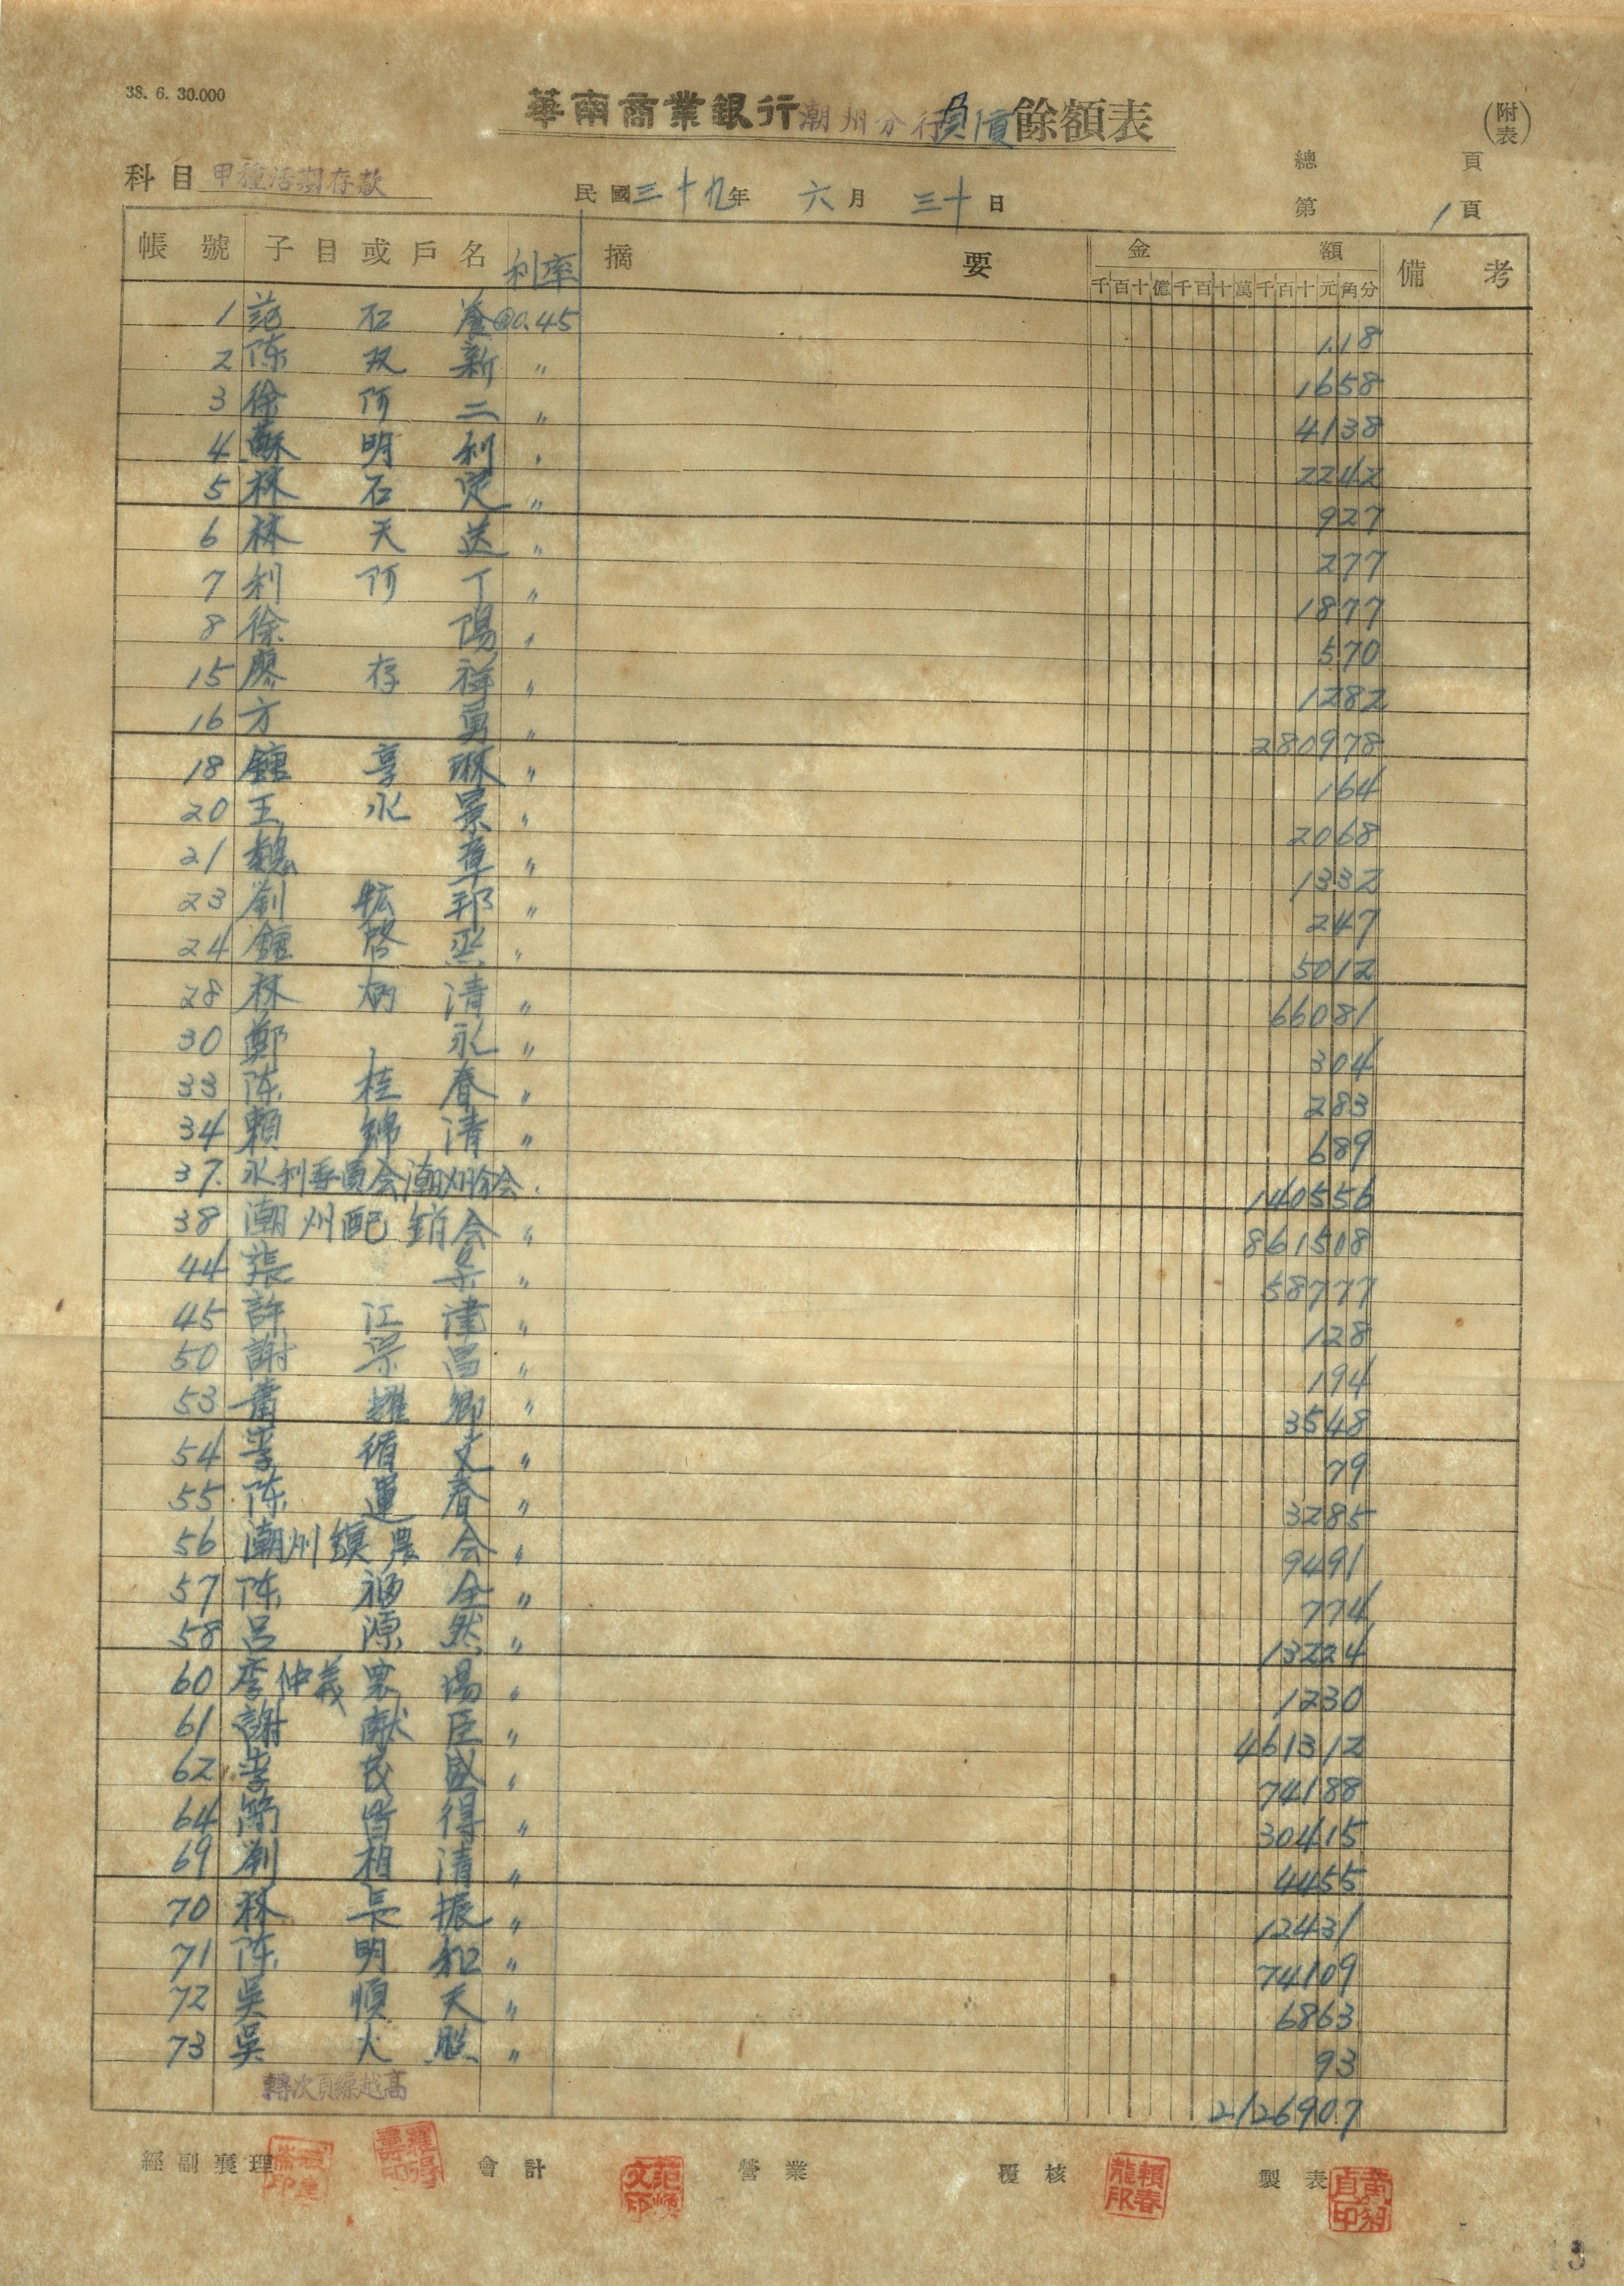 38. 6. 30.000
華南商業銀行潮州分行負債餘額表
(附表)
科目 甲種活期存款
民國三十九年 六月 三十日
總 頁
第 1 頁
帳號 子目或戶名 利率 摘要 金額 備考
千百十億千百十萬千百十元角分
1 范石養 @0.45 1.18
2 陈双新 〃 1658
3 徐阿二 〃 4138
4 蘇明利 〃 2242
5 林石定 〃 927
6 林天送 〃 277
7 利阿丁 〃 1877
8 徐陽 〃 570
15 廖存祥 〃 1282
16 方勇 〃 280978
18 鍾享琳 〃 164
20 王水景 〃 2068
21 魏章 〃 1332
23 劉邦 〃 247
24 鍾啓 〃 5012
28 林炳清 〃 66081
30 鄭永 〃 304
33 陈桂春 〃 283
34 賴錦清 〃 689
37. 水利委員会潮州会 〃 140556
38 潮州配銷会 〃 861508
44 張 〃 58777
45 許江津 〃 128
50 謝昌 〃 194
53 蕭耀卿 〃 3548
54 李循文 〃 79
55 陈運春 〃 3285
56 潮州鎮農会 〃 9491
57 陈福全 〃 774
58 呂源然 〃 13224
60 李仲義 〃 1230
61 謝献臣 〃 461312
62 李茂盛 〃 74188
64 簡皆得 〃 30415
69 劉柏清 〃 4455
70 林長振 〃 12431
71 陈明和 〃 74109
72 吳順天 〃 6863
73 吳火 〃 93
轉次頁總越高 2126907
經副襄理 會計 營業 覆核 製表
范順文印
賴春龍印
13